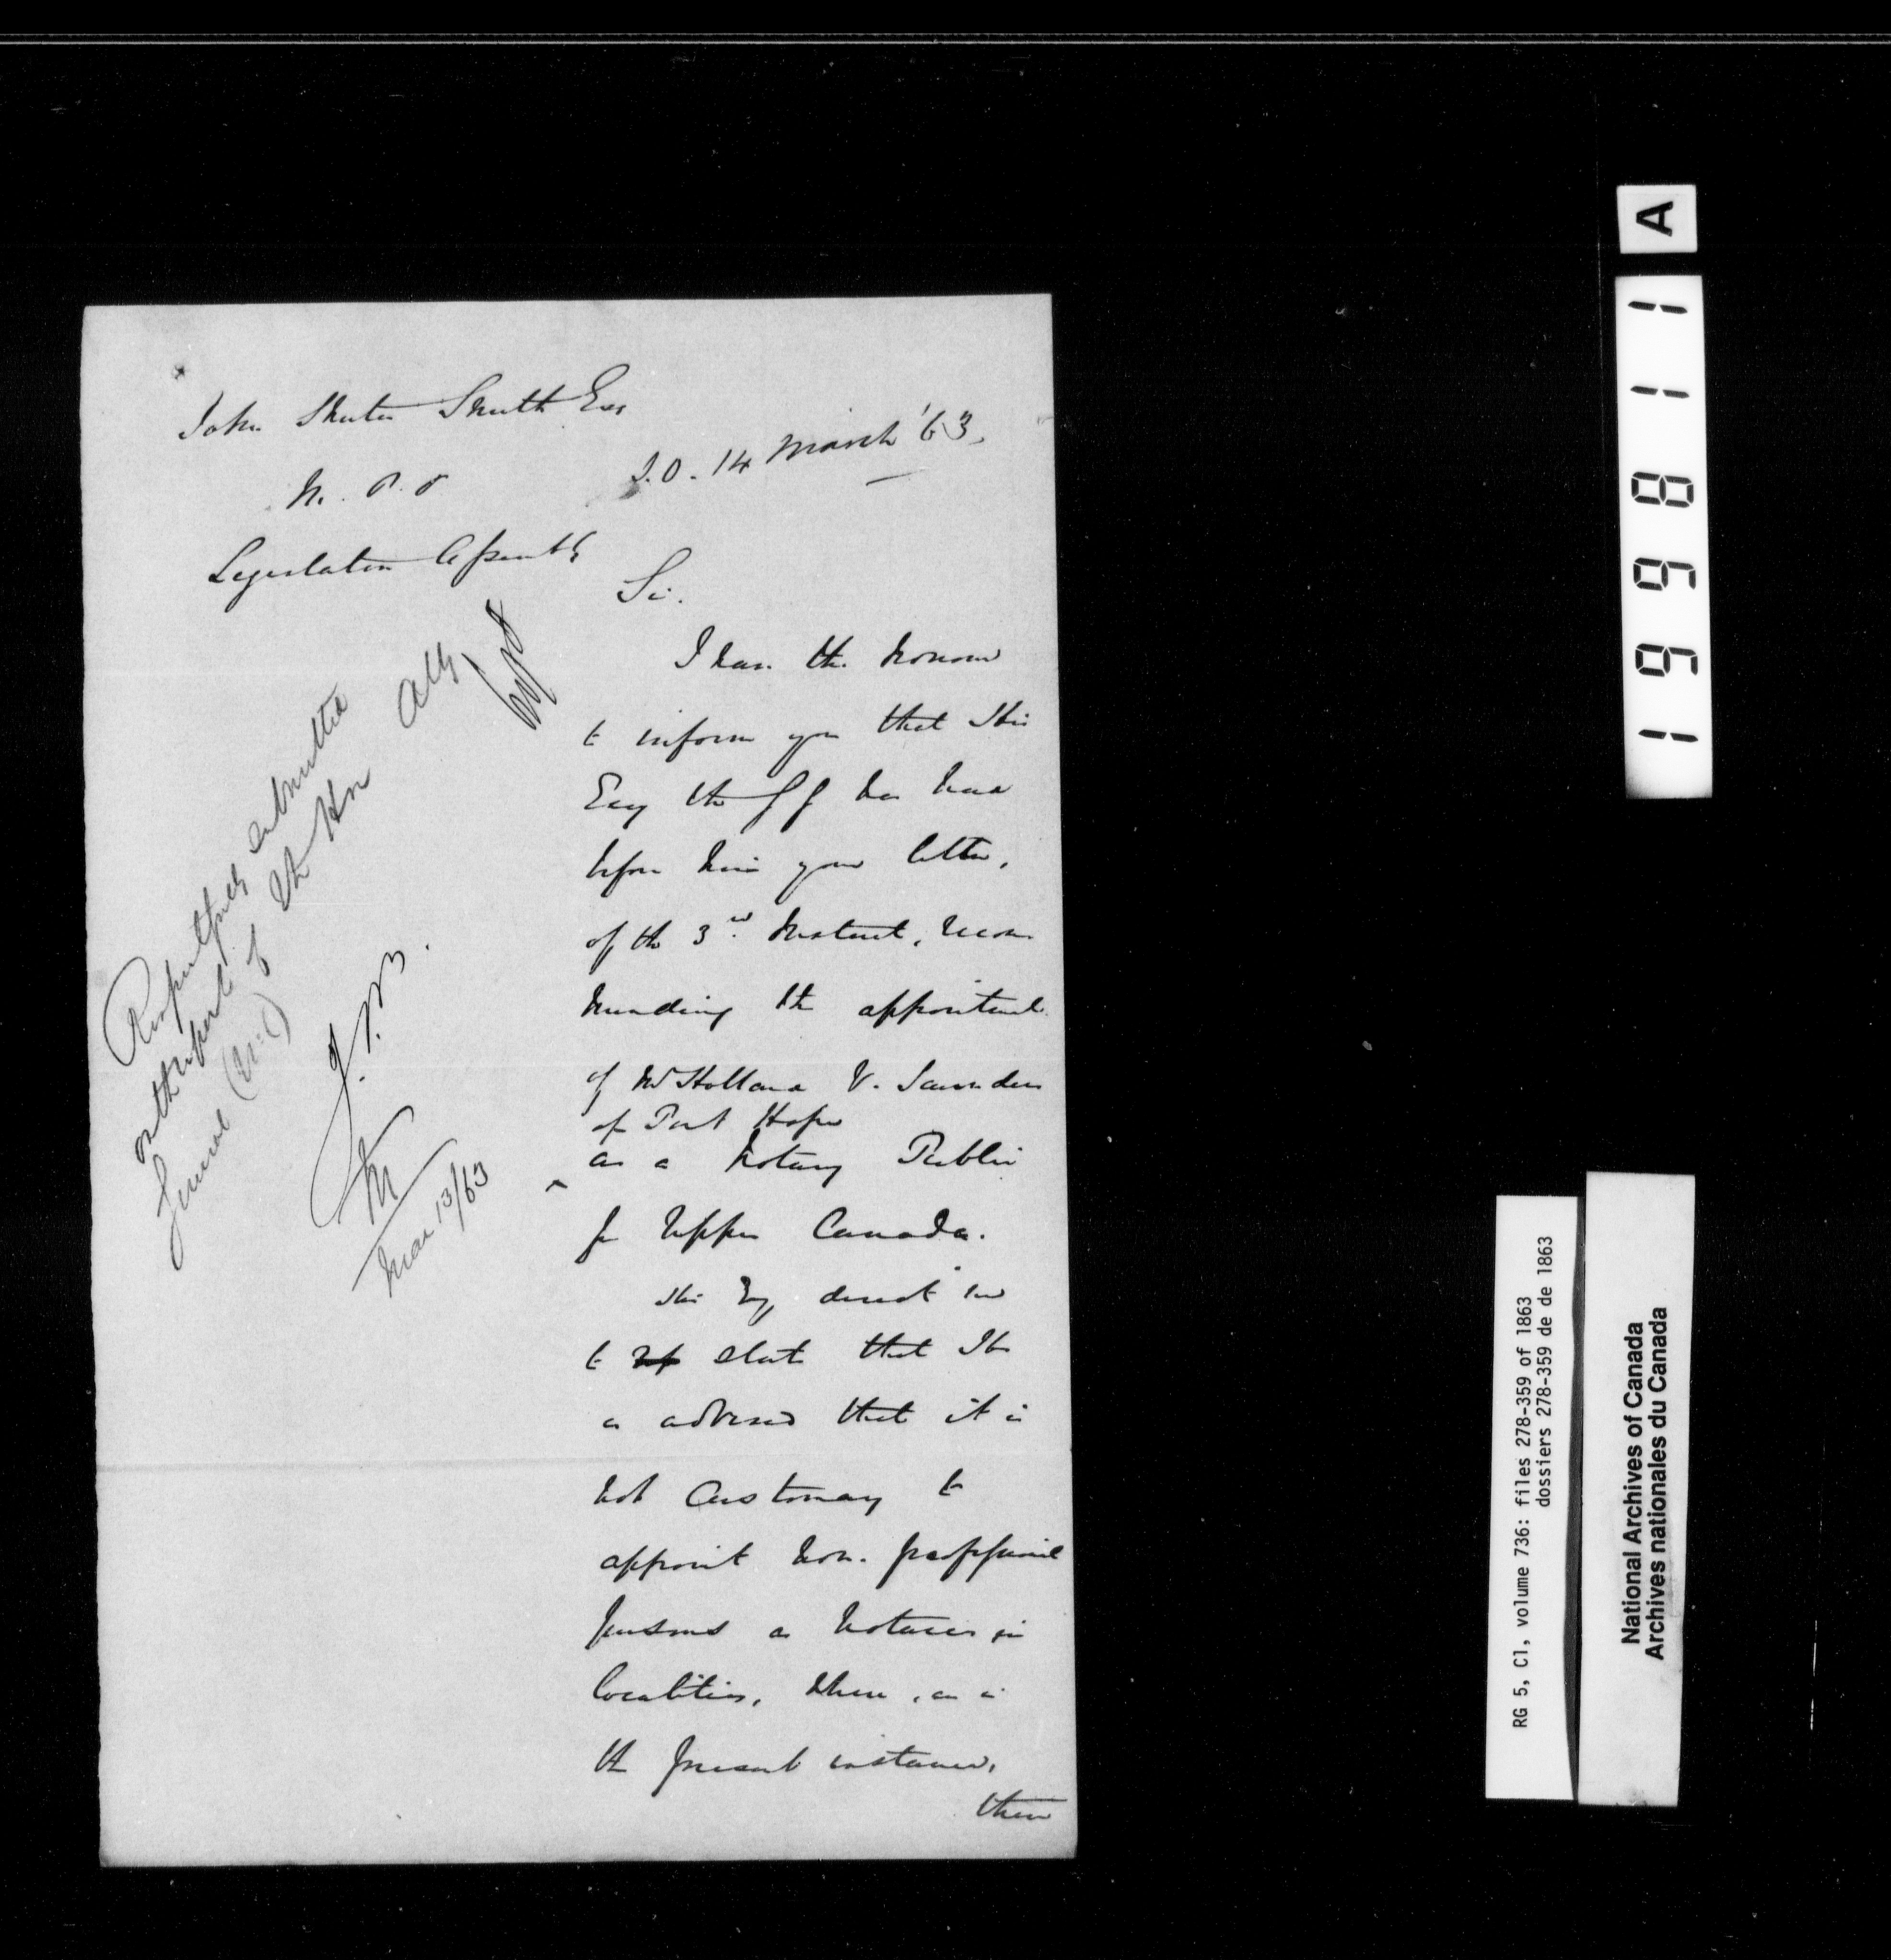 John Shuter Smith Esq
M. P. P
S.O. 14 March '63.
Legislative Assembly
Sir.
I have the honour
to inform you that His
Excy the GG has had
before him your letter,
of the 3rd Instant, recom
mending the appointment
of Mr Holland V. Saunders
of Port Hope
as a Notary Public
for Upper Canada.
His Excy directs me
to state that He
is advised that it is
not customary to
appoint non-professional
persons as Notaries in
localities, where, as in
the present instance,
there
Respectfully submitted
on the report of the Hon Atty
General (U.C)
Mar 13/63
A
1996811
RG 5, C1, volume 736: files 278-359 of 1863
dossiers 278-359 de de 1863
National Archives of Canada
Archives nationales du Canada